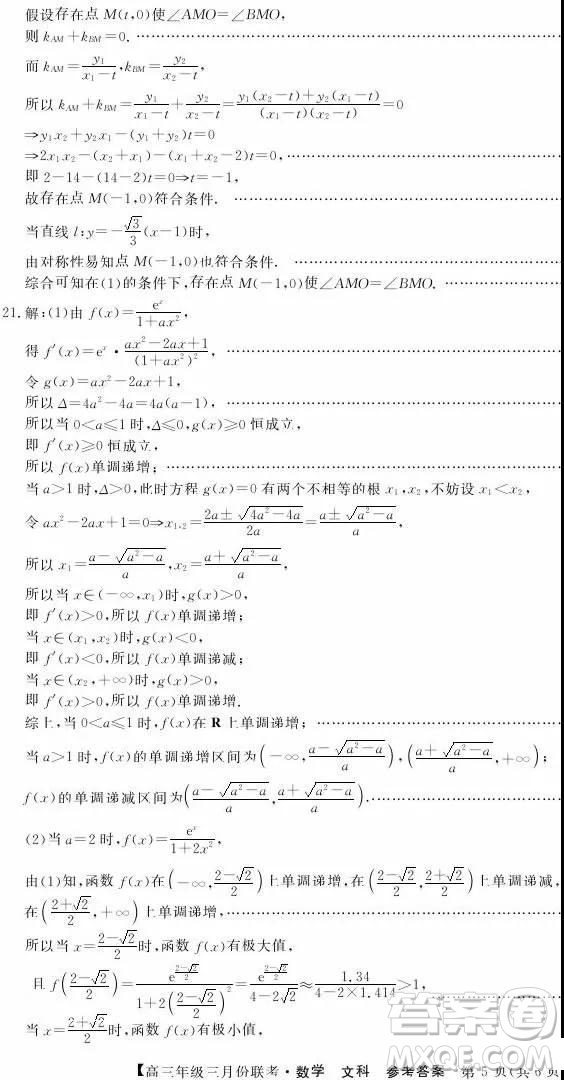 假设存在点 M(t,0)使∠AMO=∠BMO,
则 k_{AM}+k_{BM}=0. ……
而 k_{AM}=\frac{y_1}{x_1-t},k_{BM}=\frac{y_2}{x_2-t},
所以 k_{AM}+k_{BM}=\frac{y_1}{x_1-t}+\frac{y_2}{x_2-t}=\frac{y_1(x_2-t)+y_2(x_1-t)}{(x_1-t)(x_2-t)}=0
⇒y_1x_2+y_2x_1-(y_1+y_2)t=0
⇒2x_1x_2-(x_2+x_1)-(x_1+x_2-2)t=0, ……
即 2-14-(14-2)t=0⇒t=-1,
故存在点 M(-1,0)符合条件. ……
当直线 l:y=-\frac{\sqrt{3}}{3}(x-1)时,
由对称性易知点 M(-1,0)也符合条件. ……
综合可知在(1)的条件下,存在点 M(-1,0)使∠AMO=∠BMO. ……
21.解:(1)由 f(x)=\frac{e^x}{1+ax^2},
得 f′(x)=e^x·\frac{ax^2-2ax+1}{(1+ax^2)^2}, ……
令 g(x)=ax^2-2ax+1,
所以 Δ=4a^2-4a=4a(a-1), ……
所以当 0<a≤1 时,Δ≤0,g(x)≥0 恒成立,
即 f′(x)≥0 恒成立,
所以 f(x)单调递增; ……
当 a>1 时,Δ>0,此时方程 g(x)=0 有两个不相等的根 x_1,x_2,不妨设 x_1<x_2,
令 ax^2-2ax+1=0⇒x_{1,2}=\frac{2a±\sqrt{4a^2-4a}}{2a}=\frac{a±\sqrt{a^2-a}}{a},
所以 x_1=\frac{a-\sqrt{a^2-a}}{a},x_2=\frac{a+\sqrt{a^2-a}}{a},
所以当 x∈(-∞,x_1)时,g(x)>0,
即 f′(x)>0,所以 f(x)单调递增;
当 x∈(x_1,x_2)时,g(x)<0,
即 f′(x)<0,所以 f(x)单调递减;
当 x∈(x_2,+∞)时,g(x)>0,
即 f′(x)>0,所以 f(x)单调递增.
综上,当 0<a≤1 时,f(x)在 R 上单调递增; ……
当 a>1 时,f(x)的单调递增区间为(-∞,\frac{a-\sqrt{a^2-a}}{a}),(\frac{a+\sqrt{a^2-a}}{a},+∞);
f(x)的单调递减区间为(\frac{a-\sqrt{a^2-a}}{a},\frac{a+\sqrt{a^2-a}}{a}). ……
(2)当 a=2 时,f(x)=\frac{e^x}{1+2x^2},
由(1)知,函数 f(x)在(-∞,\frac{2-\sqrt{2}}{2})上单调递增,在(\frac{2-\sqrt{2}}{2},\frac{2+\sqrt{2}}{2})上单调递减,
在(\frac{2+\sqrt{2}}{2},+∞)上单调递增, ……
所以当 x=\frac{2-\sqrt{2}}{2}时,函数 f(x)有极大值,
且 f(\frac{2-\sqrt{2}}{2})=\frac{e^{\frac{2-\sqrt{2}}{2}}}{1+2(\frac{2-\sqrt{2}}{2})^2}=\frac{e^{\frac{2-\sqrt{2}}{2}}}{4-2\sqrt{2}}≈\frac{1.34}{4-2×1.414}>1, ……
当 x=\frac{2+\sqrt{2}}{2}时,函数 f(x)有极小值,
【高三年级三月份联考·数学 文科 参考答案 第 5 页(共 6 页
答案圈